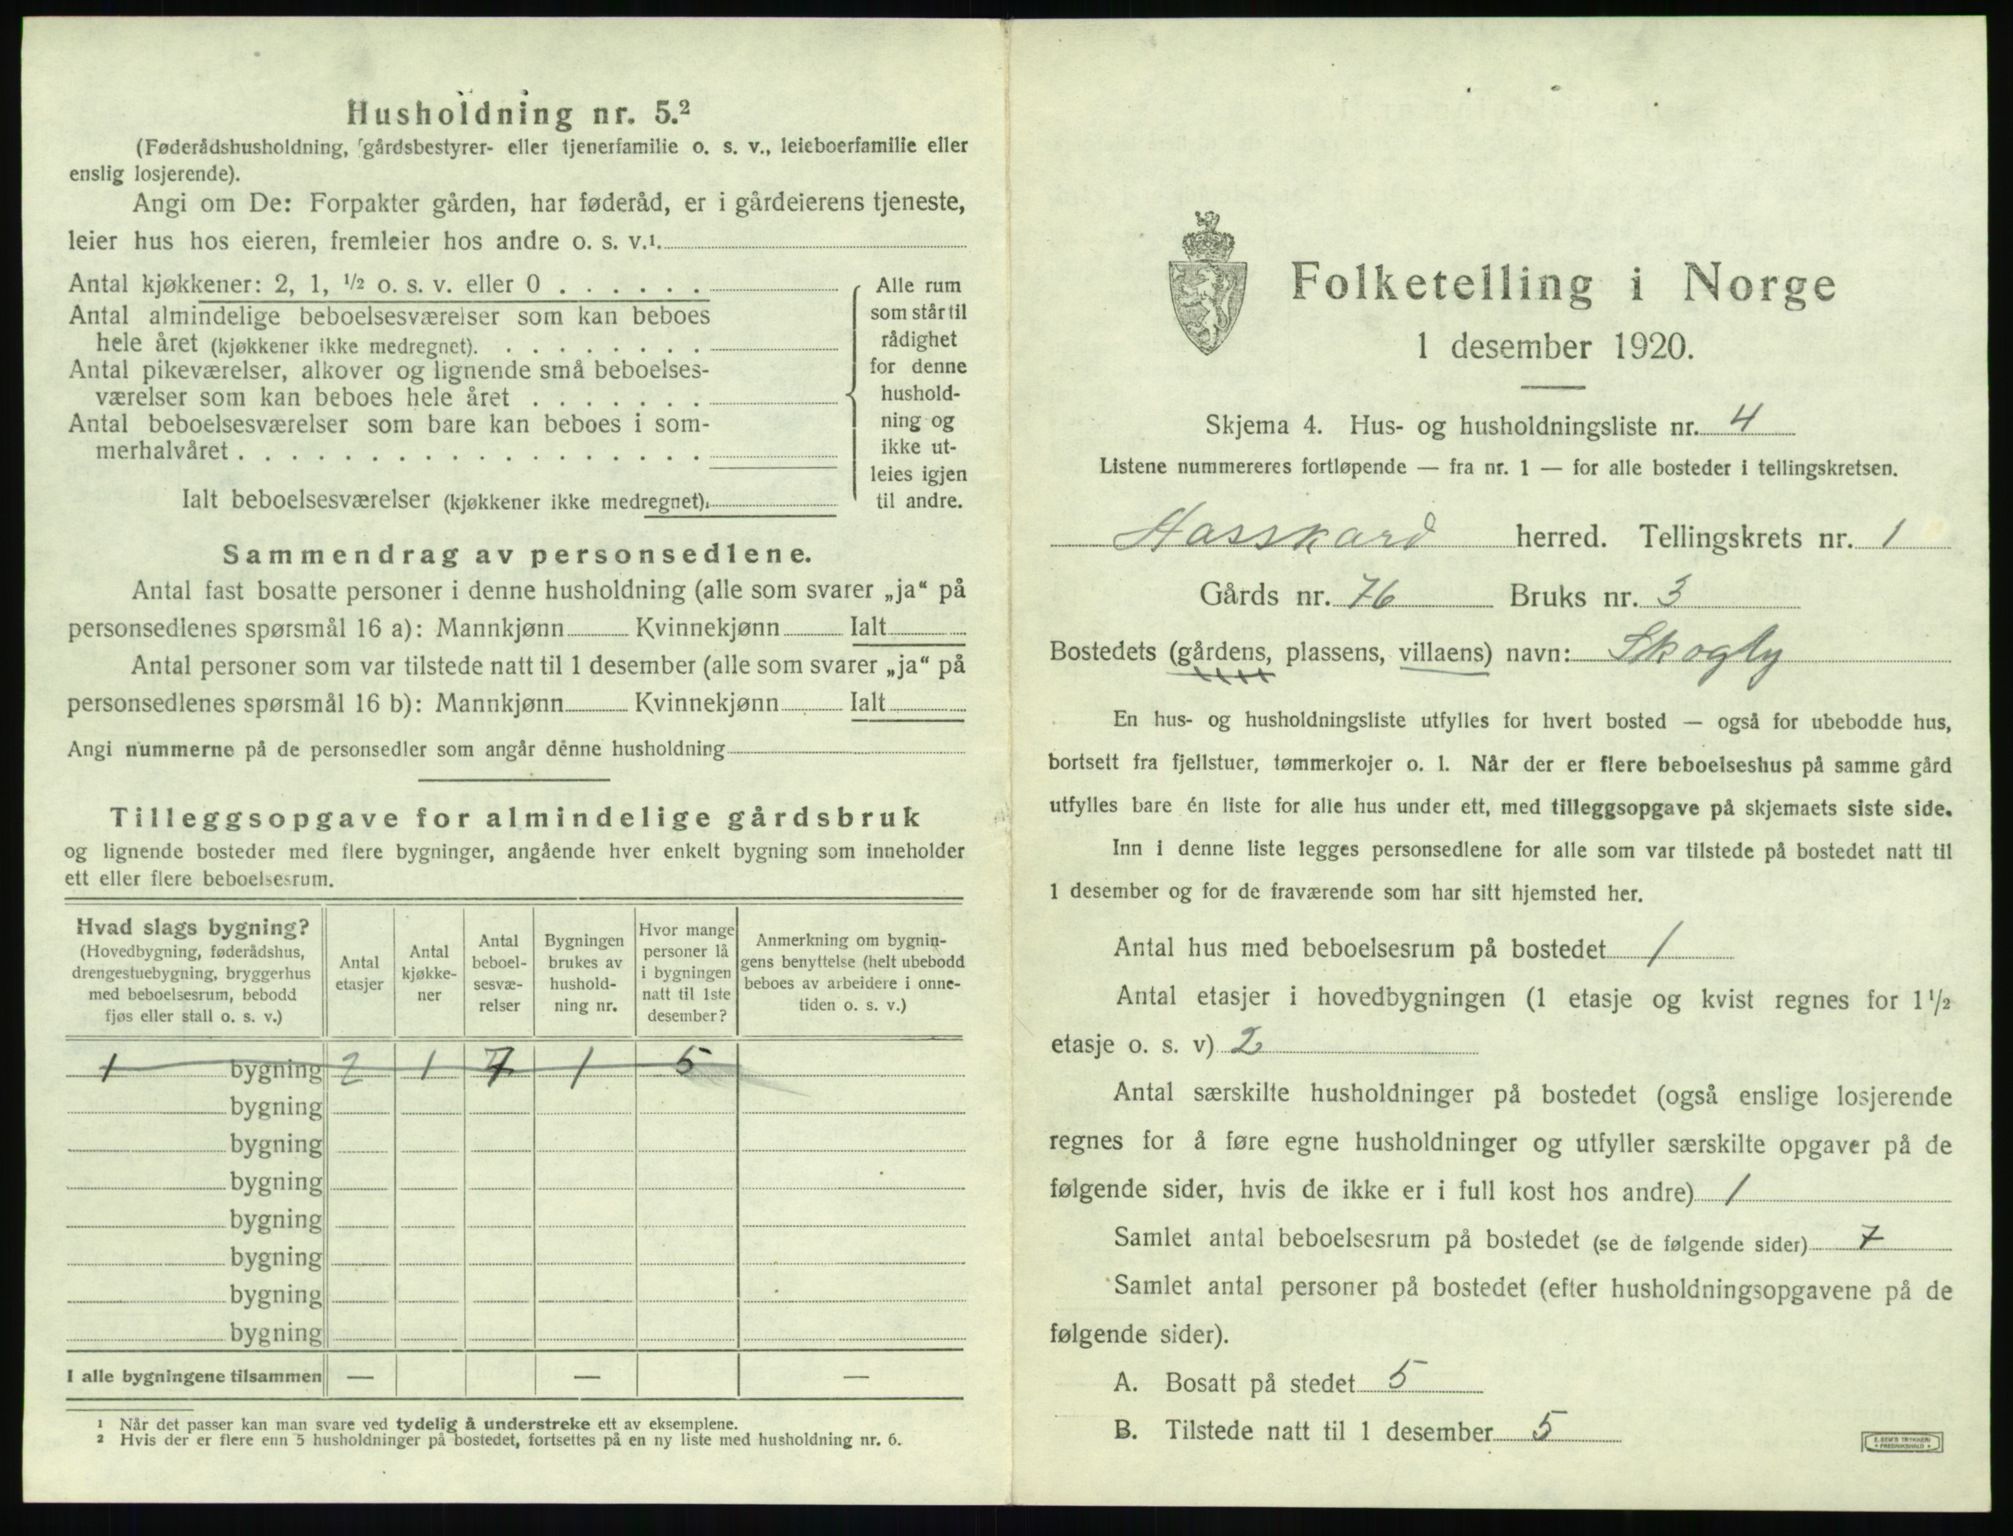 Husholdning nr. 5.²
(Føderådshusholdning, gårdsbestyrer- eller tjenerfamilie o. s. v., leieboerfamilie eller
enslig losjerende).
Angi om De: Forpakter gården, har føderåd, er i gårdeierens tjeneste,
leier hus hos eieren, fremleier hos andre o. s. v.¹.
Antal kjøkkener: 2, 1, ½ o. s. v. eller 0 . . . . . .
Antal almindelige beboelsesværelser som kan beboes
hele året (kjøkkener ikke medregnet). . . . . . . . .
Antal pikeværelser, alkover og lignende små beboelses-
værelser som kan beboes hele året . . . . . . .
Antal beboelsesværelser som bare kan beboes i som-
merhalvåret . . . . . . . . . . . . . . . . . .
Ialt beboelsesværelser (kjøkkener ikke medregnet).
Alle rum
som står til
rådighet
for denne
hushold-
ning og
ikke ut-
leies igjen
til andre.
Sammendrag av personsedlene.
Antal fast bosatte personer i denne husholdning (alle som svarer „ja“ på
personsedlenes spørsmål 16 a): Mannkjønn Kvinnekjønn Ialt
Antal personer som var tilstede natt til 1 desember (alle som svarer „ja“ på
personsedlenes spørsmål 16 b): Mannkjønn Kvinnekjønn Ialt
Angi nummerne på de personsedler som angår denne husholdning
Tilleggsopgave for almindelige gårdsbruk
og lignende bosteder med flere bygninger, angående hver enkelt bygning som inneholder
ett eller flere beboelsesrum.
Hvad slags bygning?
(Hovedbygning, føderådshus,
drengestuebygning, bryggerhus
med beboelsesrum, bebodd
fjøs eller stall o. s. v.)
Antal
etasjer
Antal
kjøkke-
ner
Antal
beboel-
sesvæ-
relser
Bygningen
brukes av
hushold-
ning nr.
Hvor mange
personer lå
i bygningen
natt til 1ste
desember?
Anmerkning om bygnin-
gens benyttelse (helt ubebodd
beboes av arbeidere i onne-
tiden o. s. v.)
1 bygning 2 1 7 1 5
bygning
bygning
bygning
bygning
bygning
bygning
bygning
I alle bygningene tilsammen — — —
¹ Når det passer kan man svare ved tydelig å understreke ett av eksemplene.
² Hvis der er flere enn 5 husholdninger på bostedet, fortsettes på en ny liste med husholdning nr. 6.
Folketelling i Norge
1 desember 1920.
Skjema 4. Hus- og husholdningsliste nr. 4
Listene nummereres fortløpende — fra nr. 1 — for alle bosteder i tellingskretsen.
Hasskard herred. Tellingskrets nr. 1
Gårds nr. 76 Bruks nr. 3
Bostedets (gårdens, plassens, villaens) navn: Skogly
En hus- og husholdningsliste utfylles for hvert bosted — også for ubebodde hus,
bortsett fra fjellstuer, tømmerkojer o. l. Når der er flere beboelseshus på samme gård
utfylles bare én liste for alle hus under ett, med tilleggsopgave på skjemaets siste side.
Inn i denne liste legges personsedlene for alle som var tilstede på bostedet natt til
1 desember og for de fraværende som har sitt hjemsted her.
Antal hus med beboelsesrum på bostedet 1
Antal etasjer i hovedbygningen (1 etasje og kvist regnes for 1½
etasje o. s. v) 2
Antal særskilte husholdninger på bostedet (også enslige losjerende
regnes for å føre egne husholdninger og utfyller særskilte opgaver på de
følgende sider, hvis de ikke er i full kost hos andre) 1
Samlet antal beboelsesrum på bostedet (se de følgende sider) 7
Samlet antal personer på bostedet (efter husholdningsopgavene på de
følgende sider).
A. Bosatt på stedet 5
B. Tilstede natt til 1 desember 5
E. SEM'S TRYKKERI
• FREDRIKSHALD •